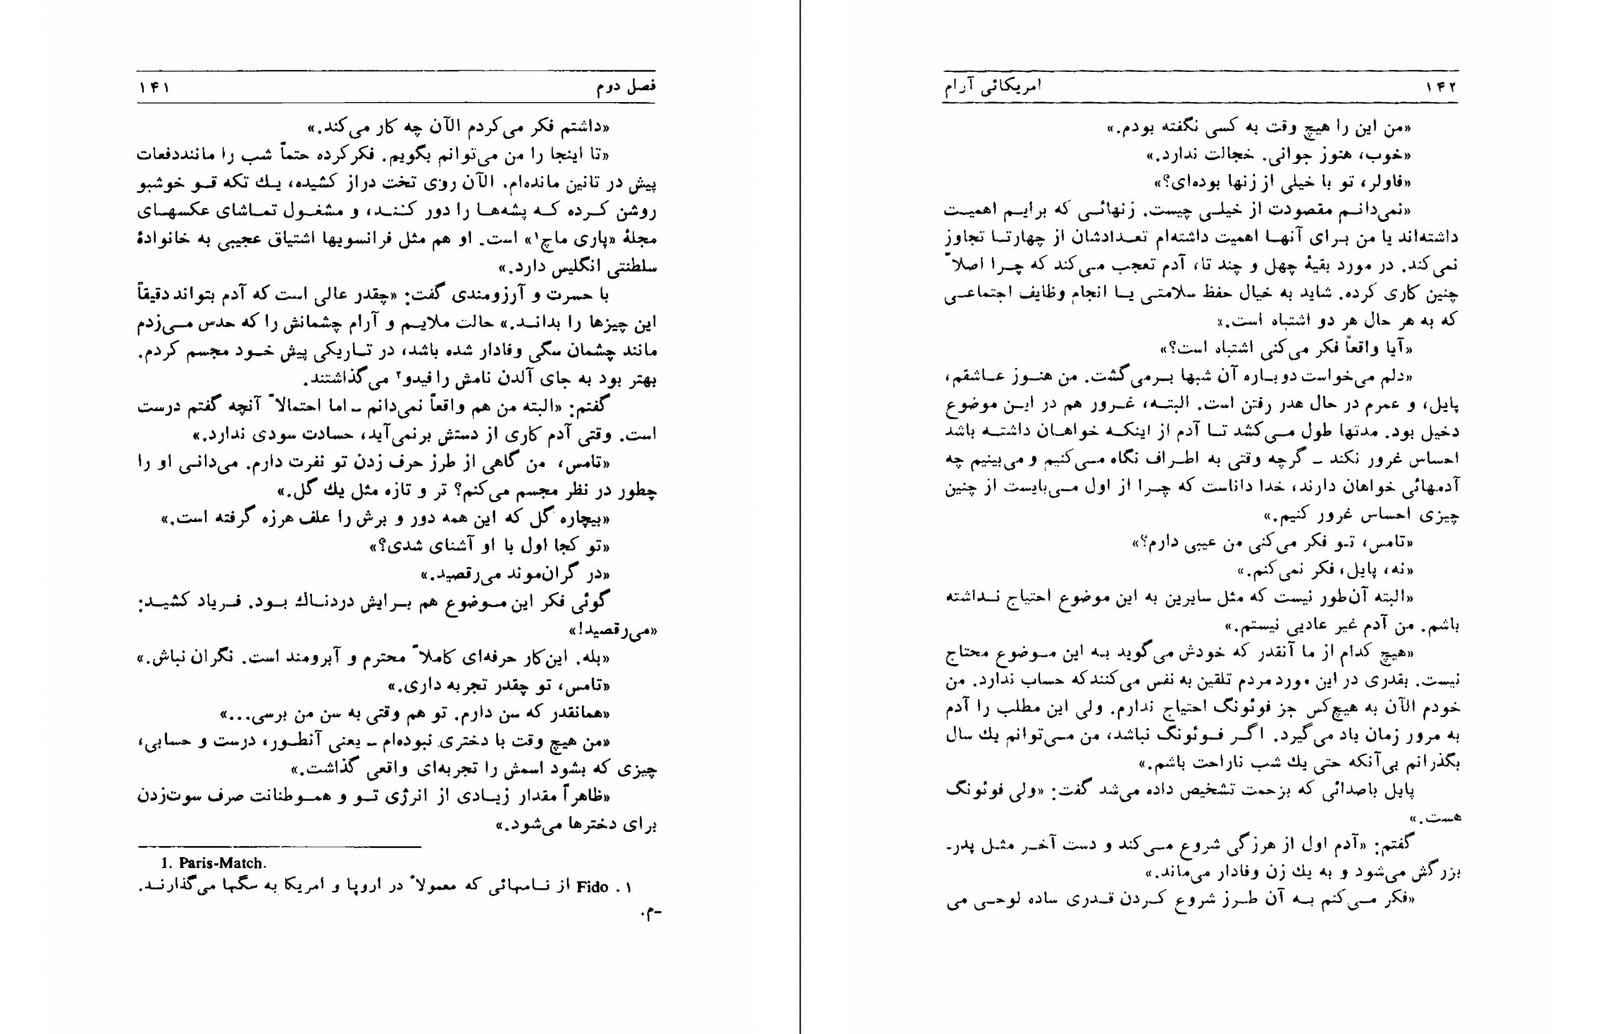 فصل دوم ۱۴۱
«داشتم فکر می‌کردم الآن چه کار می‌کند.»
«تا اینجا را من می‌توانم بگویم. فکرکرده حتماً شب را ماننددفعات
پیش در تانین مانده‌ام. الآن روی تخت دراز کشیده، یك تکه قو خوشبو
روشن کرده که پشه‌ها را دور کنند، و مشغول تماشای عکسهای
مجلهٔ «پاری ماچ۱» است. او هم مثل فرانسویها اشتیاق عجیبی به خانوادهٔ
سلطنتی انگلیس دارد.»
با حسرت و آرزومندی گفت: «چقدر عالی است که آدم بتواند دقیقاً
این چیزها را بداند.» حالت ملایم و آرام چشمانش را که حدس می‌زدم
مانند چشمان سگی وفادار شده باشد، در تاریکی پیش خود مجسم کردم.
بهتر بود به جای آلدن نامش را فیدو۲ می‌گذاشتند.
گفتم: «البته من هم واقعاً نمی‌دانم ــ اما احتمالاً آنچه گفتم درست
است. وقتی آدم کاری از دستش برنمی‌آید، حسادت سودی ندارد.»
«تامس، من گاهی از طرز حرف زدن تو نفرت دارم. می‌دانی او را
چطور در نظر مجسم می‌کنم؟ تر و تازه مثل یك گل.»
«بیچاره گل که این همه دور و برش را علف هرزه گرفته است.»
«تو کجا اول با او آشنای شدی؟»
«در گران‌موند می‌رقصید.»
گوئی فکر این موضوع هم برایش دردناك بود. فریاد کشید:
«می‌رقصید!»
«بله. این‌کار حرفه‌ای کاملاً محترم و آبرومند است. نگران نباش.»
«تامس، تو چقدر تجربه داری.»
«همانقدر که سن دارم. تو هم وقتی به سن من برسی...»
«من هیچ وقت با دختری نبوده‌ام ــ یعنی آنطور، درست و حسابی،
چیزی که بشود اسمش را تجربه‌ای واقعی گذاشت.»
«ظاهراً مقدار زیادی از انرژی تو و هموطنانت صرف سوت‌زدن
برای دخترها می‌شود.»
1. Paris-Match.
۱. Fido از نامهائی که معمولاً در اروپا و امریکا به سگها می‌گذارند.
-م.
۱۴۲ امریکائی آرام
«من این را هیچ وقت به کسی نگفته بودم.»
«خوب، هنوز جوانی. خجالت ندارد.»
«فاولر، تو با خیلی از زنها بوده‌ای؟»
«نمی‌دانم مقصودت از خیلی چیست. زنهائی که برایم اهمیت
داشته‌اند یا من برای آنها اهمیت داشته‌ام تعدادشان از چهارتا تجاوز
نمی‌کند. در مورد بقیهٔ چهل و چند تا، آدم تعجب می‌کند که چرا اصلاً
چنین کاری کرده. شاید به خیال حفظ سلامتی یا انجام وظایف اجتماعی
که به هر حال هر دو اشتباه است.»
«آیا واقعاً فکر می‌کنی اشتباه است؟»
«دلم می‌خواست دوباره آن شبها برمی‌گشت. من هنوز عاشقم،
پایل، و عمرم در حال هدر رفتن است. البته، غرور هم در این موضوع
دخیل بود. مدتها طول می‌کشد تا آدم از اینکه خواهان داشته باشد
احساس غرور نکند ــ گرچه وقتی به اطراف نگاه می‌کنیم و می‌بینیم چه
آدمهائی خواهان دارند، خدا داناست که چرا از اول می‌بایست از چنین
چیزی احساس غرور کنیم.»
«تامس، تو فکر می‌کنی من عیبی دارم؟»
«نه، پایل، فکر نمی‌کنم.»
«البته آن‌طور نیست که مثل سایرین به این موضوع احتیاج نداشته
باشم. من آدم غیر عادیی نیستم.»
«هیچ کدام از ما آنقدر که خودش می‌گوید به این موضوع محتاج
نیست. بقدری در این مورد مردم تلقین به نفس می‌کنندکه حساب ندارد. من
خودم الآن به هیچ‌کس جز فوئونگ احتیاج ندارم. ولی این مطلب را آدم
به مرور زمان یاد می‌گیرد. اگر فوئونگ نباشد، من می‌توانم یك سال
بگذرانم بی‌آنکه حتی یك شب ناراحت باشم.»
پایل باصدائی که بزحمت تشخیص داده می‌شد گفت: «ولی فوئونگ
هست.»
گفتم: «آدم اول از هرزگی شروع می‌کند و دست آخر مثل پدر-
بزرگش می‌شود و به یك زن وفادار می‌ماند.»
«فکر می‌کنم به آن طرز شروع کردن قدری ساده لوحی می